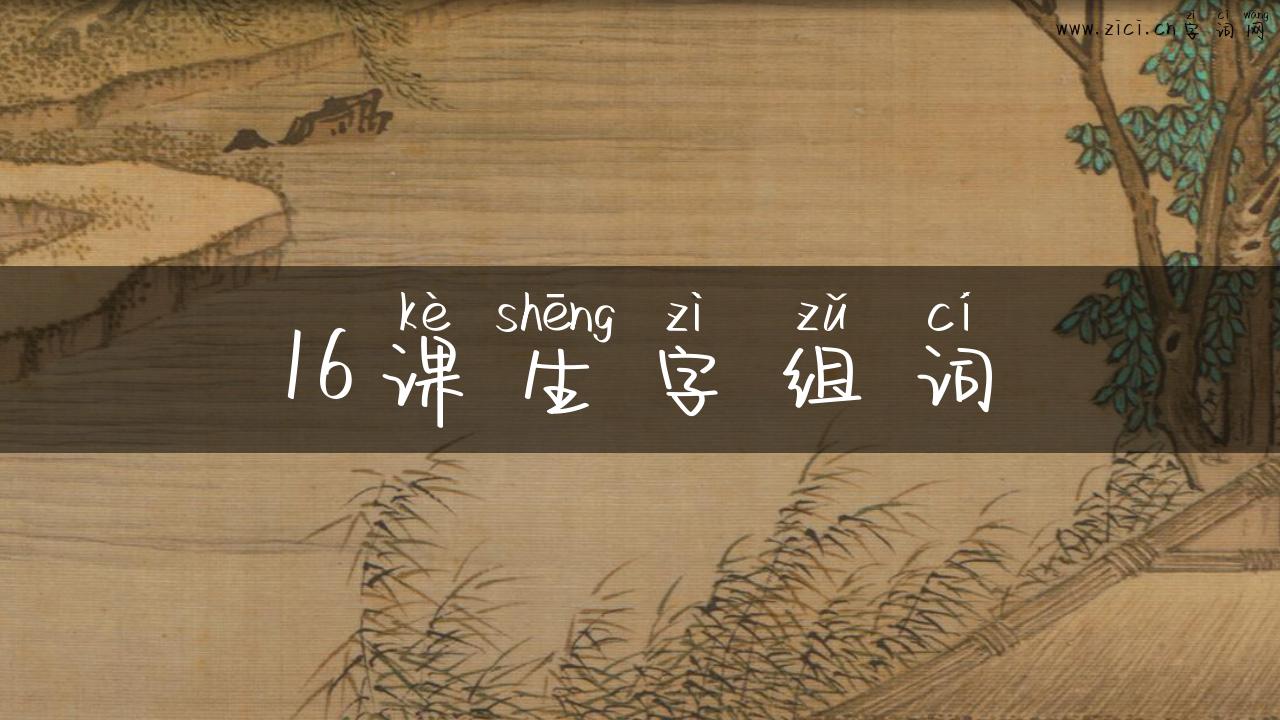 zì cí wǎng
www.zici.cn字词网
kè shēng zì zǔ cí
16课生字组词